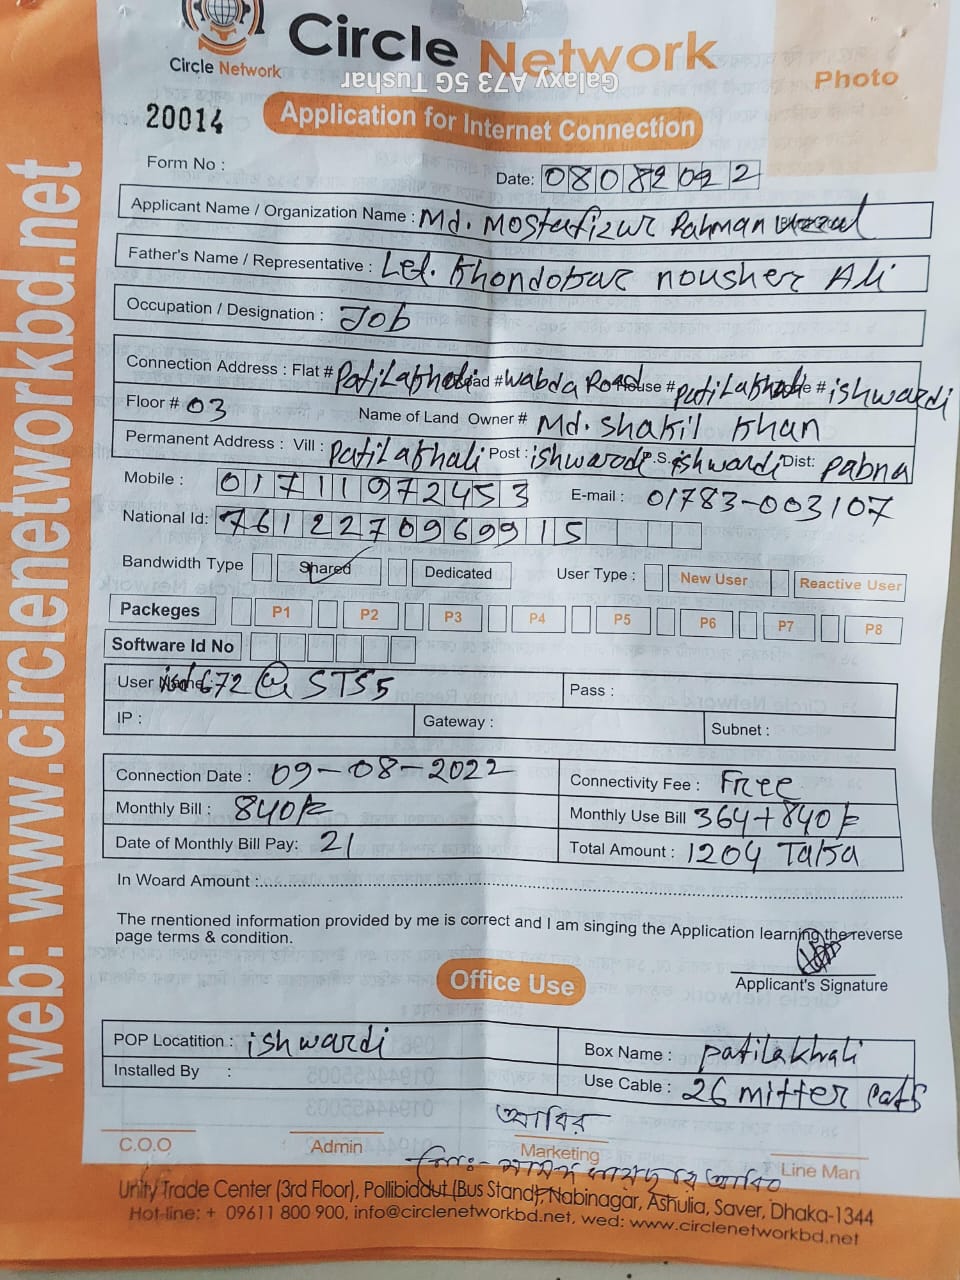 Circle Network
Circle Network
Galaxy A73 5G Tushar
Photo
20014
Application for Internet Connection
Form No :
Date: 08082022
Applicant Name / Organization Name : Md. Mostafizur Rahman
Father's Name / Representative : Let. Khondokar nousher Ali
Occupation / Designation : Job
Connection Address : Flat # Patilakhali Road # Wabda Road House # Patilakhali # ishwardi
Floor # 03 Name of Land Owner # Md. Shakil Khan
Permanent Address : Vill : Patilakhali Post : ishwardi P.S. ishwardi Dist: Pabna
Mobile : 01711972453 E-mail : 01783-003107
National Id: 7612270969915
Bandwidth Type Shared Dedicated User Type : New User Reactive User
Packeges P1 P2 P3 P4 P5 P6 P7 P8
Software Id No
User Name: isd672@STS5 Pass :
IP : Gateway : Subnet :
Connection Date : 09-08-2022 Connectivity Fee : Free
Monthly Bill : 840/- Monthly Use Bill 364+840/-
Date of Monthly Bill Pay: 21 Total Amount : 1204 Taka
In Woard Amount :
The mentioned information provided by me is correct and I am singing the Application learning the reverse
page terms & condition.
Applicant's Signature
Office Use
POP Locatition : ishwardi Box Name : Patilakhali
Installed By : Use Cable : 26 mitter
আবির
C.O.O Admin Marketing Line Man
Unity Trade Center (3rd Floor), Pollibiddut (Bus Stand), Nabinagar, Ashulia, Saver, Dhaka-1344
Hot-line: + 09611 800 900, info@circlenetworkbd.net, wed: www.circlenetworkbd.net
web: www.circlenetworkbd.net